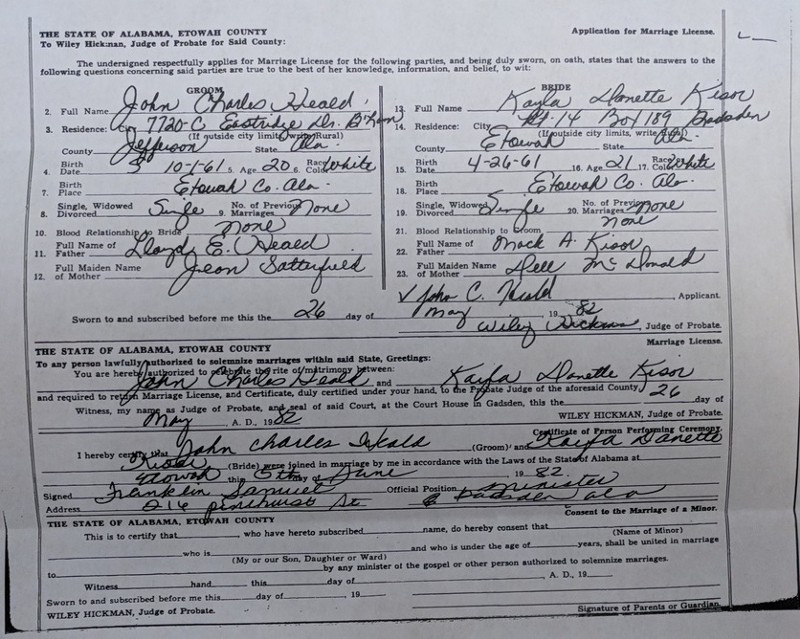 THE STATE OF ALABAMA, ETOWAH COUNTY
Application for Marriage License.
To Wiley Hickman, Judge of Probate for Said County:
The undersigned respectfully applies for Marriage License for the following parties, and being duly sworn, on oath, states that the answers to the
following questions concerning said parties are true to the best of her knowledge, information, and belief, to wit:
GROOM
2. Full Name John Charles Heald
3. Residence: City 7720-C Eastridge Dr. B'ham
(If outside city limits, write Rural)
County Jefferson State Ala.
4. Birth Date 10-1-61 5. Age 20 6. Race Color White
7. Birth Place Etowah Co. Ala.
8. Single, Widowed Divorced Single 9. No. of Previous Marriages None
10. Blood Relationship to Bride None
11. Full Name of Father Lloyd E. Heald
12. Full Maiden Name of Mother Jean Satterfield
BRIDE
13. Full Name Kayla Danette Kisor
14. Residence: City Rt. 14 Box 189 Gadsden
(If outside city limits, write Rural)
County Etowah State Ala.
15. Birth Date 4-26-61 16. Age 21 17. Race Color White
18. Birth Place Etowah Co. Ala.
19. Single, Widowed Divorced Single 20. No. of Previous Marriages None
21. Blood Relationship to Groom None
22. Full Name of Father Mack A. Kisor
23. Full Maiden Name of Mother Dell McDonald
✓ John C. Heald, Applicant.
Sworn to and subscribed before me this the 26 day of May, 1982
Wiley Hickman, Judge of Probate.
Marriage License.
THE STATE OF ALABAMA, ETOWAH COUNTY
To any person lawfully authorized to solemnise marriages within said State, Greetings:
You are hereby authorized to celebrate the rite of matrimony between:
John Charles Heald and Kayla Danette Kisor
and required to return Marriage License, and Certificate, duly certified under your hand, to the Probate Judge of the aforesaid County.
Witness, my name as Judge of Probate, and seal of said Court, at the Court House in Gadsden, this the 26 day of
May A. D., 1982 WILEY HICKMAN, Judge of Probate.
Certificate of Person Performing Ceremony.
I hereby certify that John Charles Heald (Groom) and Kayla Danette
Kisor (Bride) were joined in marriage by me in accordance with the Laws of the State of Alabama at
Etowah this 5th day of June, 1982.
Signed Franklin Samuel Official Position Minister
Address 216 Pinehurst St Gadsden Ala
Consent to the Marriage of a Minor.
THE STATE OF ALABAMA, ETOWAH COUNTY
This is to certify that, who have hereto subscribed name, do hereby consent that
(Name of Minor)
who is and who is under the age of years, shall be united in marriage
(My or our Son, Daughter or Ward)
to by any minister of the gospel or other person authorized to solemnize marriages.
Witness hand, this day of, A. D., 19
Sworn to and subscribed before me this day of, 19
WILEY HICKMAN, Judge of Probate.
Signature of Parents or Guardian.